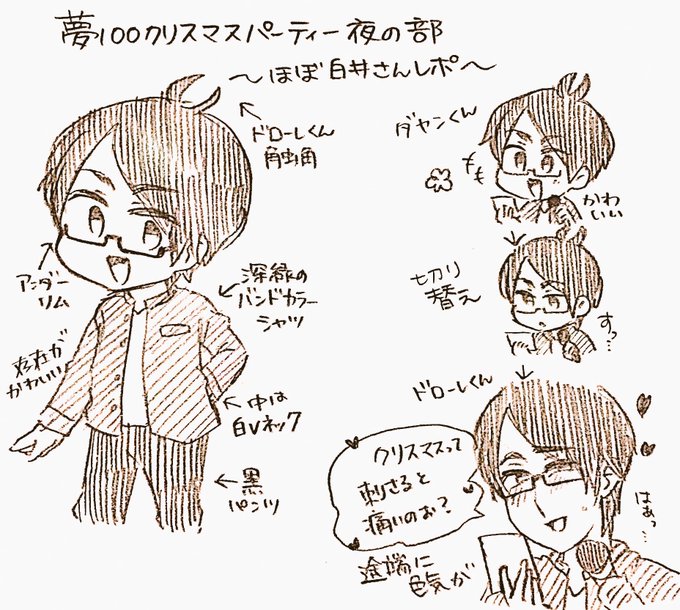 夢100クリスマスパーティー夜の部
〜ほぼ白井さんレポ〜
ドローレくん
触角
アンダー
リム
深緑の
バンドカラー
シャツ
存在が
かわいい
中は
白Vネック
黒
パンツ
ダヤンくん
もも
かわ
いい
切り
替え
すっ…
ドローレくん
クリスマスって
刺さると
痛いのぉ?
はぁっ…
途端に
色気が